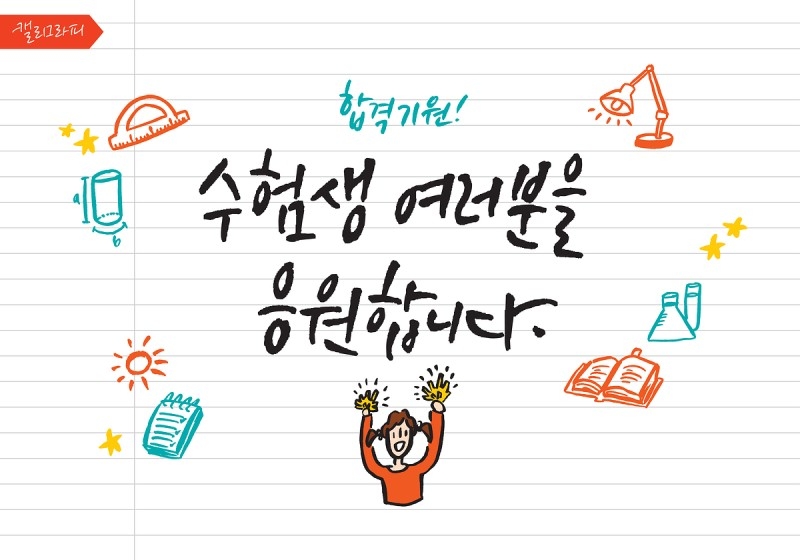 캘리그라피
합격기원!
수험생 여러분을
응원합니다.
a
b